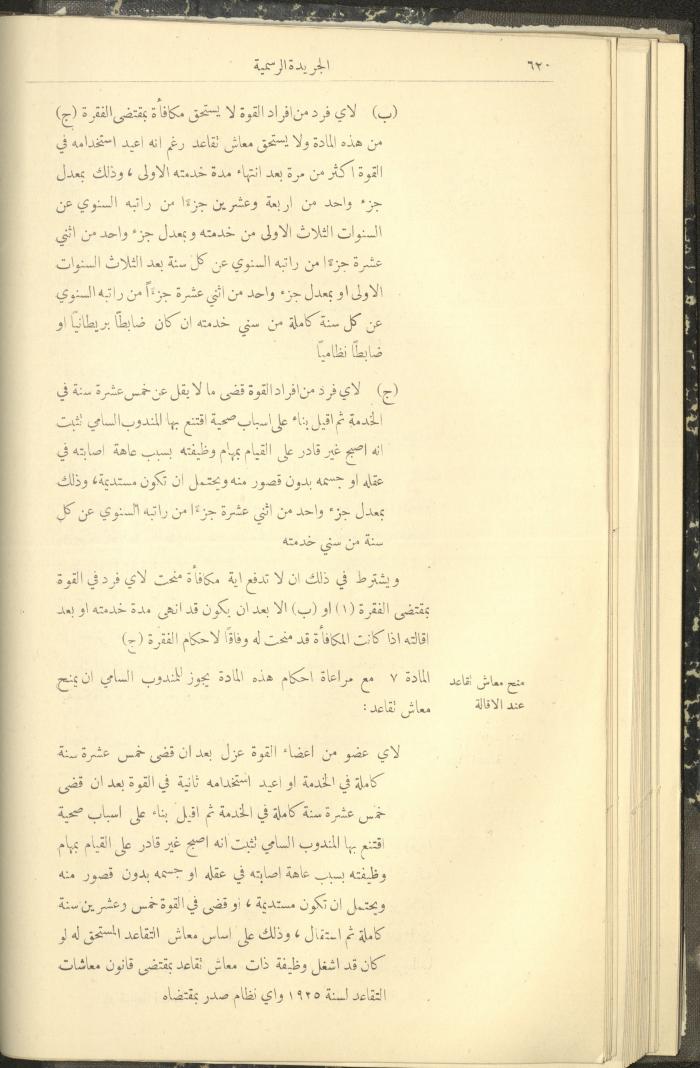 ٦٢٠
الجريدة الرسمية
(ب) لاي فرد من افراد القوة لا يستحق مكافأة بمقتضى الفقرة (ج)
من هذه المادة ولا يستحق معاش تقاعد رغم انه اعيد استخدامه في
القوة اكثر من مرة بعد انتهاء مدة خدمته الاولى ، وذلك بمعدل
جزء واحد من اربعة وعشرين جزءًا من راتبه السنوي عن
السنوات الثلاث الاولى من خدمته وبمعدل جزء واحد من اثني
عشرة جزءًا من راتبه السنوي عن كل سنة بعد الثلاث السنوات
الاولى او بمعدل جزء واحد من اثني عشرة جزءًا من راتبه السنوي
عن كل سنة كاملة من سني خدمته ان كان ضابطًا بريطانيًا او
ضابطًا نظاميًا
(ج) لاي فرد من افراد القوة قضى ما لا يقل عن خمس عشرة سنة في
الخدمة ثم اقيل بناء على اسباب صحية اقتنع بها المندوب السامي تثبت
انه اصبح غير قادر على القيام بمهام وظيفته بسبب عاهة اصابته في
عقله او جسمه بدون قصور منه ويحتمل ان تكون مستديمة، وذلك
بمعدل جزء واحد من اثني عشرة جزءًا من راتبه السنوي عن كل
سنة من سني خدمته
ويشترط في ذلك ان لا تدفع اية مكافأة منحت لاي فرد في القوة
بمقتضى الفقرة (١) او (ب) الا بعد ان يكون قد انهى مدة خدمته او بعد
اقالته اذا كانت المكافأة قد منحت له وفاقًا لاحكام الفقرة (ج)
منح معاش تقاعد
عند الاقالة
المادة ٧ مع مراعاة احكام هذه المادة يجوز للمندوب السامي ان يمنح
معاش تقاعد:
لاي عضو من اعضاء القوة عزل بعد ان قضى خمس عشرة سنة
كاملة في الخدمة او اعيد استخدامه ثانية في القوة بعد ان قضى
خمس عشرة سنة كاملة في الخدمة ثم اقيل بناء على اسباب صحية
اقتنع بها المندوب السامي تثبت انه اصبح غير قادر على القيام بمهام
وظيفته بسبب عاهة اصابته في عقله او جسمه بدون قصور منه
ويحتمل ان تكون مستديمة ، او قضى في القوة خمس وعشرين سنة
كاملة ثم استقال ، وذلك على اساس معاش التقاعد المستحق له لو
كان قد اشغل وظيفة ذات معاش تقاعد بمقتضى قانون معاشات
التقاعد لسنة ١٩٢٥ واي نظام صدر بمقتضاه